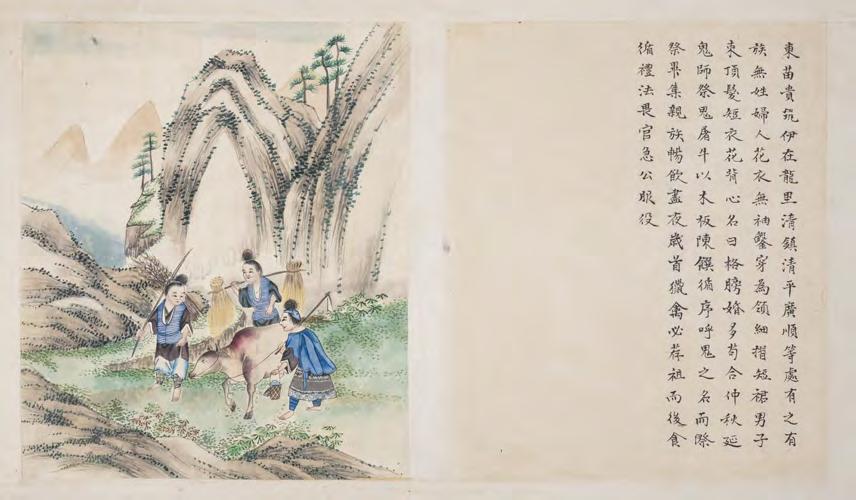 東苗貴筑伊在龍里清鎮清平廣順等處有之有
族無姓婦人花衣無袖盤穿為領細摺短裙男子
束頂髮短衣花背心名曰格膀婚多苟合仲秋延
鬼師祭鬼屠牛以木板陳饌循序呼鬼之名而祭
祭畢集親族暢飲盡夜歲首獵禽必荐祖而後食
循禮法畏官急公服役